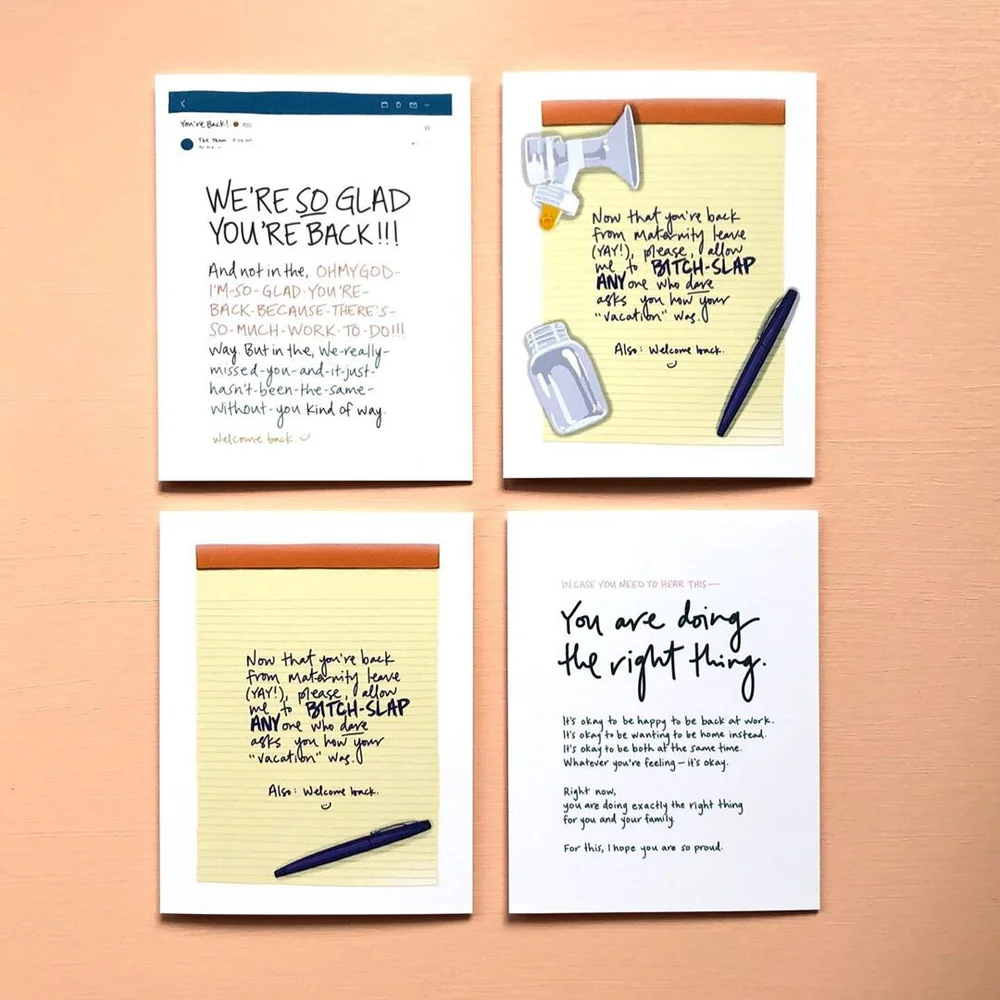 You're Back!
The Team
WE'RE SO GLAD
YOU'RE BACK!!!
And not in the, OHMYGOD-
I'M-SO-GLAD-YOU'RE-
BACK-BECAUSE-THERE'S-
SO-MUCH-WORK-TO-DO!!!
way. But in the, we-really-
missed-you-and-it-just-
hasn't-been-the-same-
without-you kind of way.
welcome back
Now that you're back
from maternity leave
(YAY!), please, allow
me to BITCH-SLAP
ANYone who dare
asks you how your
"vacation" was.
Also: Welcome back.
Now that you're back
from maternity leave
(YAY!), please, allow
me to BITCH-SLAP
ANYone who dare
asks you how your
"vacation" was.
Also: Welcome back.
IN CASE YOU NEED TO HEAR THIS—
You are doing
the right thing.
It's okay to be happy to be back at work.
It's okay to be wanting to be home instead.
It's okay to be both at the same time.
Whatever you're feeling—it's okay.
Right now,
you are doing exactly the right thing
for you and your family.
For this, I hope you are so proud.